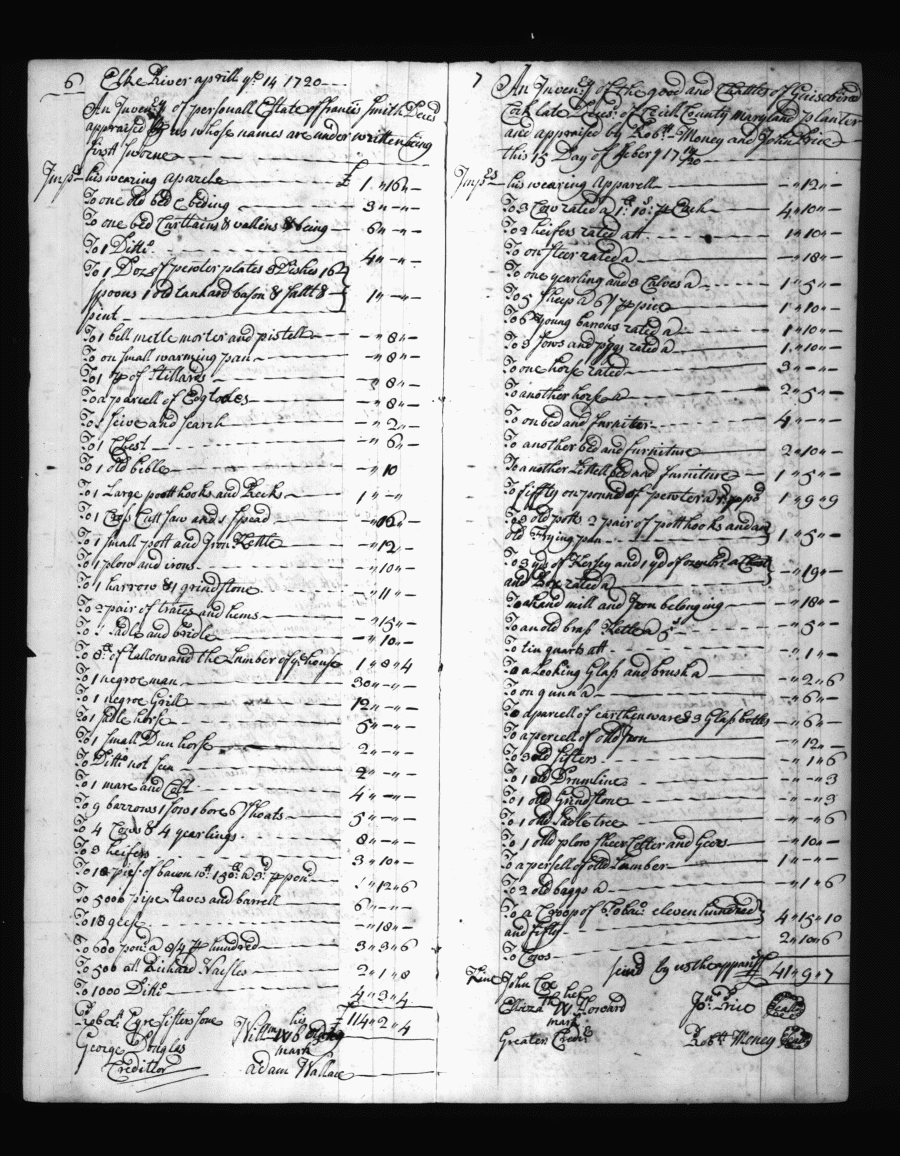 6 Elke River aprill ye 14 1720
An Inveny of personall Estate of francis Smith Decd
appraised by us whose names are under written being
first Sworne
Imps his wearing aparele £ 1 " 16 " –
To one old bed & beding 3 " – " –
To one bed Curttains & vallens & being 6 " – " –
To 1 Ditto 4 " – " –
To 1 Doz of pewter plates 8 Dishes 16
spoons 1 old tankard bason & sallt & 1 " – " –
pint
To 1 bell metle morter and pistell – " 8 " –
To on small warming pan – " 8 " –
To 1 pr of Stillards – " 8 " –
To a parcell of – " 8 " –
To 1 seive and search – " 2 " –
To 1 Chest – " 6 " –
To 1 old bible – " 10
To 1 Large pott hooks and Reek 1 " – " –
To 1 Cross Cutt saw and 1 spead – " 16 " –
To 1 small pott and Iron Kettle – " 12 " –
To 1 plow and irons – " 10 " –
To 1 harrow & 1 grindstone – " 11 " –
To 2 pair of traces and hems – " 15 " –
To 1 Sadle and bridle – " 10 " –
To 8 of tallow and the Lumber of ye house 1 " 8 " 4
To 1 negroe man 30 " – " –
To 1 negroe Grill 12 " – " –
To 1 sadle horse 5 " – " –
To 1 small Dun horse 2 " – " –
To Ditto not seen 2 " – " –
To 1 mare and Colt 4 " – " –
To 9 barrows 1 sow 1 bore 6 shoats 5 " – " –
To 4 Cows & 4 yearlings 8 " – " –
To 3 heifers 3 " 10 " –
To 18 pies of bacon wt 130 a 3d p pond 1 " 12 " 6
To 5006 pipe staves and barrell 6 " – " –
To 18 geese – " 18 " –
To 600 pond a 8/4 p hundred 3 " 3 " 6
To 500 att Richard 2 " 1 " 8
To 1000 Ditto 4 " 3 " 4
£ 114 " 2 " 4
Robt Eyre sisters sone
George Douglas
Creditor
his
Willm W
mark
Adam Wallace
7 An Inveny of the good and Chattles of
Cork late Decs of Cecill County maryland planter
and appraised by Robt Money and John Price
this 15 Day of
Imps his wearing Apparell – " 12 " –
To 3 Cow rated a 1 10 p Each 4 " 10 " –
To 2 heifers rated att 1 " 10 " –
To on steer rated a – " 18 " –
To one yearling and 2 Calves a 1 " 5 " –
To 5 sheep a 6/ p pice 1 " 10 " –
To 6 young barrens rated a 1 " 10 " –
To 3 sows and piggs rated a 1 " 10 " –
To one horse rated 3 " – " –
To another horse a 2 " 5 " –
To on bed and furniter 4 " – " –
To another bed and furniture 2 " 10 " –
To another Littell bed and furniture 1 " 5 " –
To fiffty on pound of pewter a 7d p pd 1 " 9 " 9
To 3 old potts 2 pair of potthooks and an
old frying pan 1 " 5 " –
To 3 yds of Kersey and 1 yd of a Chest
and Box rated a – " 19 " –
To a hand mill and Iron belonging – " 18 " –
To an old brass Kettle a 5s – " 5 " –
To tin quart att – " 1 " –
To a Looking Glass and brush a – " 2 " 6
To on gunn a – " 6 " –
To a parcell of earthenware & 3 Glass bottles – " 6 " –
To a percell of old Iron – " 12 –
To 3 old sifters – " 1 " 6
To 1 old Drumline – " – " 3
To 1 old Grindstone – " – " 3
To 1 old sadletree – " – " 6
To 1 old plow sheer Colter and Geers – " 10 " –
To a persell of old Lumber 1 " – " –
To 2 old baggs a – " 1 " 6
To a Croop of Tobaco eleven hundred
and fifty 4 " 15 " 10
To Coros 2 " 10 " 6
signd by us the £ 41 " 9 " 7
John Cox
her
Elliza W Howard
mark
Greater Credr
Jno Price Seale
Robtt Money Seale